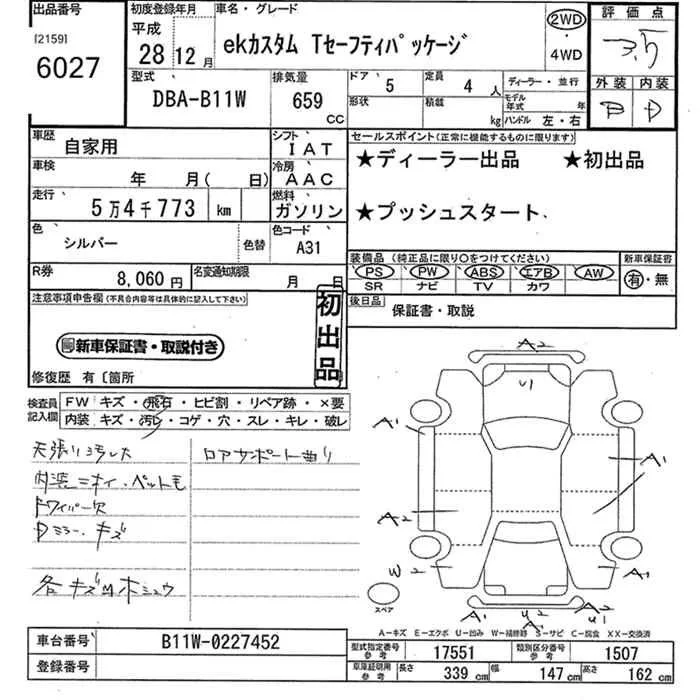 出品番号
[2159]
6027
初度登録年月
平成
28年12月
車名・グレード
ekカスタム Tセーフティパッケージ
2WD
・
4WD
評価点
3.5
外装 内装
B D
型式
DBA-B11W
排気量
659
cc
ドア 5
定員 4 人
形状
積載
kg
ディーラー・並行
モデル年式 年
ハンドル 左・右
車歴
自家用
シフト
IAT
車検
年 月( 日)
冷房
AAC
走行
5万4千773 km
燃料
ガソリン
色
シルバー
色替
色コード
A31
R券
8,060円
名変通知期限
月 日
セールスポイント(正常に機能するものに限ります)
★ディーラー出品 ★初出品
★プッシュスタート
装備品(純正品に限り○をつけてください)
新車保証書
PS PW ABS エアB AW
SR ナビ TV カワ
有・無
後日品
保証書・取説
注意事項申告欄(不具合内容等は具体的に記入して下さい)
新車保証書・取説付き
初出品
修復歴 有〔箇所
検査員
記入欄
FW キズ・飛石・ヒビ割・リペア跡・×要
内装 キズ・汚レ・コゲ・穴・スレ・キレ・破レ
ロアサポート曲り
内装ニオイ・ペット毛
ドワイパー欠
Dミラーキズ
A2
U1
A1
A1
A2
A1
W2
A1
A1
U2
A2
スペア
A-キズ E-エクボ U-凹み W-補修跡 S-サビ C-腐食 XX-交換済
車台番号
B11W-0227452
登録番号
型式指定番号
参考
17551
類別区分番号
参考
1507
車庫証明用
参考
長さ 339 cm
幅 147 cm
高さ 162 cm